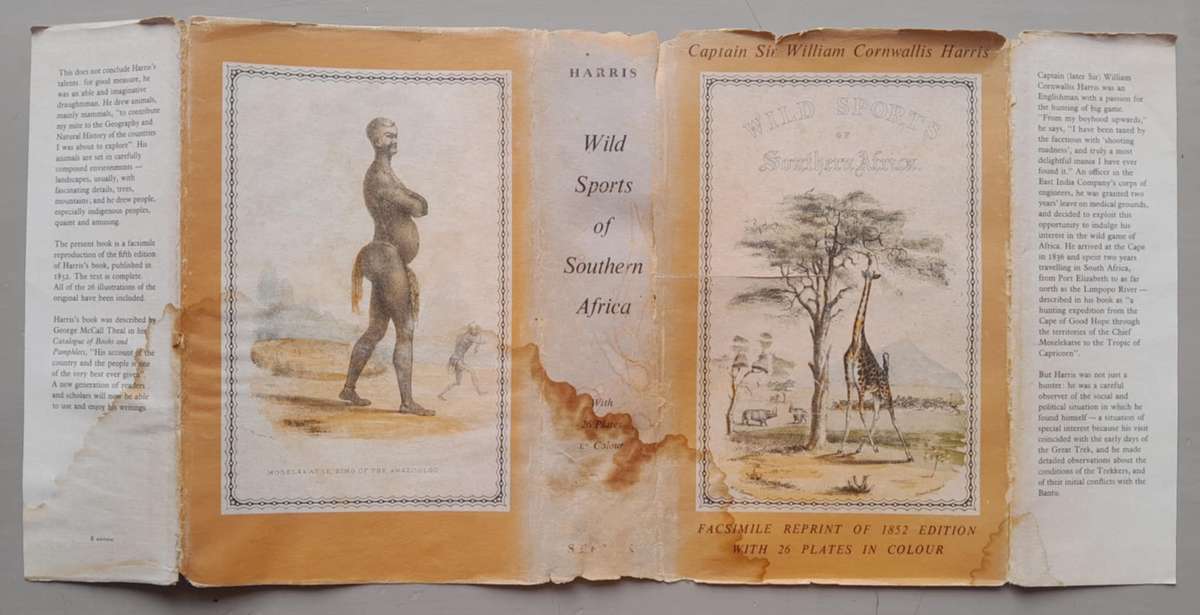 This does not conclude Harris's
talents: for good measure, he
was an able and imaginative
draughtsman. He drew animals,
mainly mammals, "to contribute
my mite to the Geography and
Natural History of the countries
I was about to explore". His
animals are set in carefully
composed environments —
landscapes, usually, with
fascinating details, trees,
mountains; and he drew people,
especially indigenous peoples,
quaint and amusing.
The present book is a facsimile
reproduction of the fifth edition
of Harris's book, published in
1852. The text is complete.
All of the 26 illustrations of the
original have been included.
Harris's book was described by
George McCall Theal in his
Catalogue of Books and
Pamphlets, "His account of the
country and the people is one
of the very best ever given".
A new generation of readers
and scholars will now be able
to use and enjoy his writings.
MOSELEKATSE, KING OF THE AMAZOOLOO
HARRIS
Wild
Sports
of
Southern
Africa
With
26 Plates
in Colour
Captain Sir William Cornwallis Harris
WILD SPORTS
OF
Southern Africa.
FACSIMILE REPRINT OF 1852 EDITION
WITH 26 PLATES IN COLOUR
Captain (later Sir) William
Cornwallis Harris was an
Englishman with a passion for
the hunting of big game.
"From my boyhood upwards,"
he says, "I have been taxed by
the facetious with 'shooting
madness', and truly a most
delightful mania I have ever
found it." An officer in the
East India Company's corps of
engineers, he was granted two
years' leave on medical grounds,
and decided to exploit this
opportunity to indulge his
interest in the wild game of
Africa. He arrived at the Cape
in 1836 and spent two years
travelling in South Africa,
from Port Elizabeth to as far
north as the Limpopo River —
described in his book as "a
hunting expedition from the
Cape of Good Hope through
the territories of the Chief
Moselekatse to the Tropic of
Capricorn".
But Harris was not just a
hunter: he was a careful
observer of the social and
political situation in which he
found himself — a situation of
special interest because his visit
coincided with the early days of
the Great Trek, and he made
detailed observations about the
conditions of the Trekkers, and
of their initial conflicts with the
Bantu.